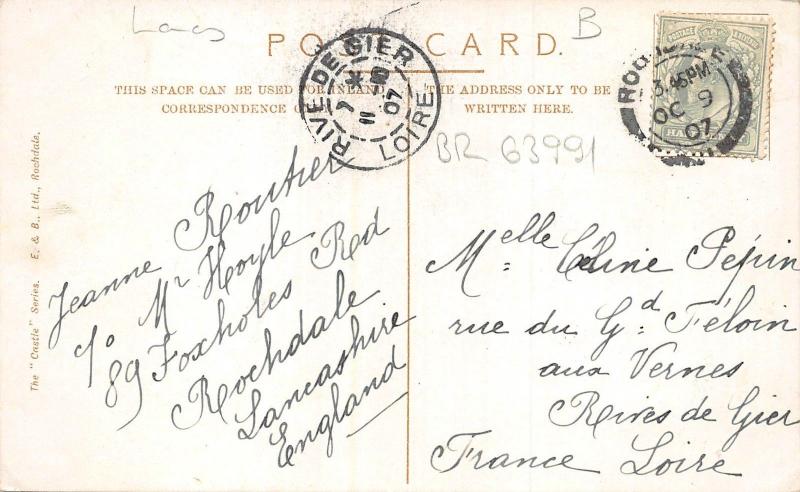 Lacs
B
POST CARD.
THIS SPACE CAN BE USED FOR INLAND
CORRESPONDENCE
THE ADDRESS ONLY TO BE
WRITTEN HERE.
RIVE DE GIER
7 * 
11 - 10
07
LOIRE
ROCHDALE
3.45PM
OC 9
07
POSTAGE & REVENUE
HALFPENNY
BR 63991
The "Castle" Series. E. & B., Ltd., Rochdale.
Jeanne Routier
c/o Mr Hoyle
89 Foxholes Rd
Rochdale
Lancashire
England
Melle Céline Pépin
rue du Gd Féloin
aux Vernes
Rives de Gier
France Loire